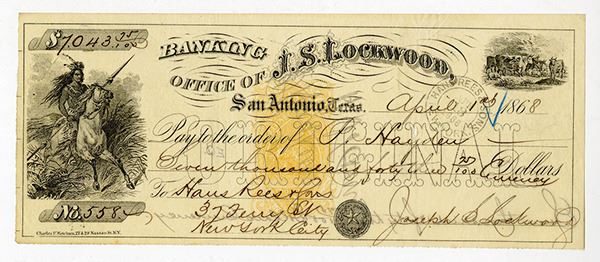 $7043 25/100
BANKING
OFFICE OF J. S. LOCKWOOD,
San Antonio, Texas. April 1st 1868
Pay to the order of P Hayden
Seven thousand and forty three 25/100 Dollars
Currency
To Hans Rees & Sons
37 Ferry St
New York City
Joseph S Lockwood
No. 558